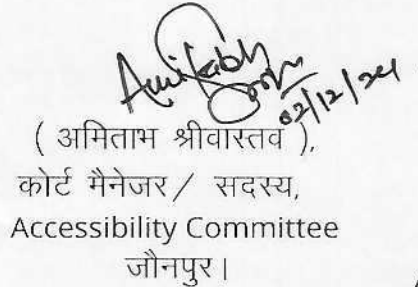 Amitabh
02/12/24
( अमिताभ श्रीवास्तव ),
कोर्ट मैनेजर / सदस्य,
Accessibility Committee
जौनपुर।